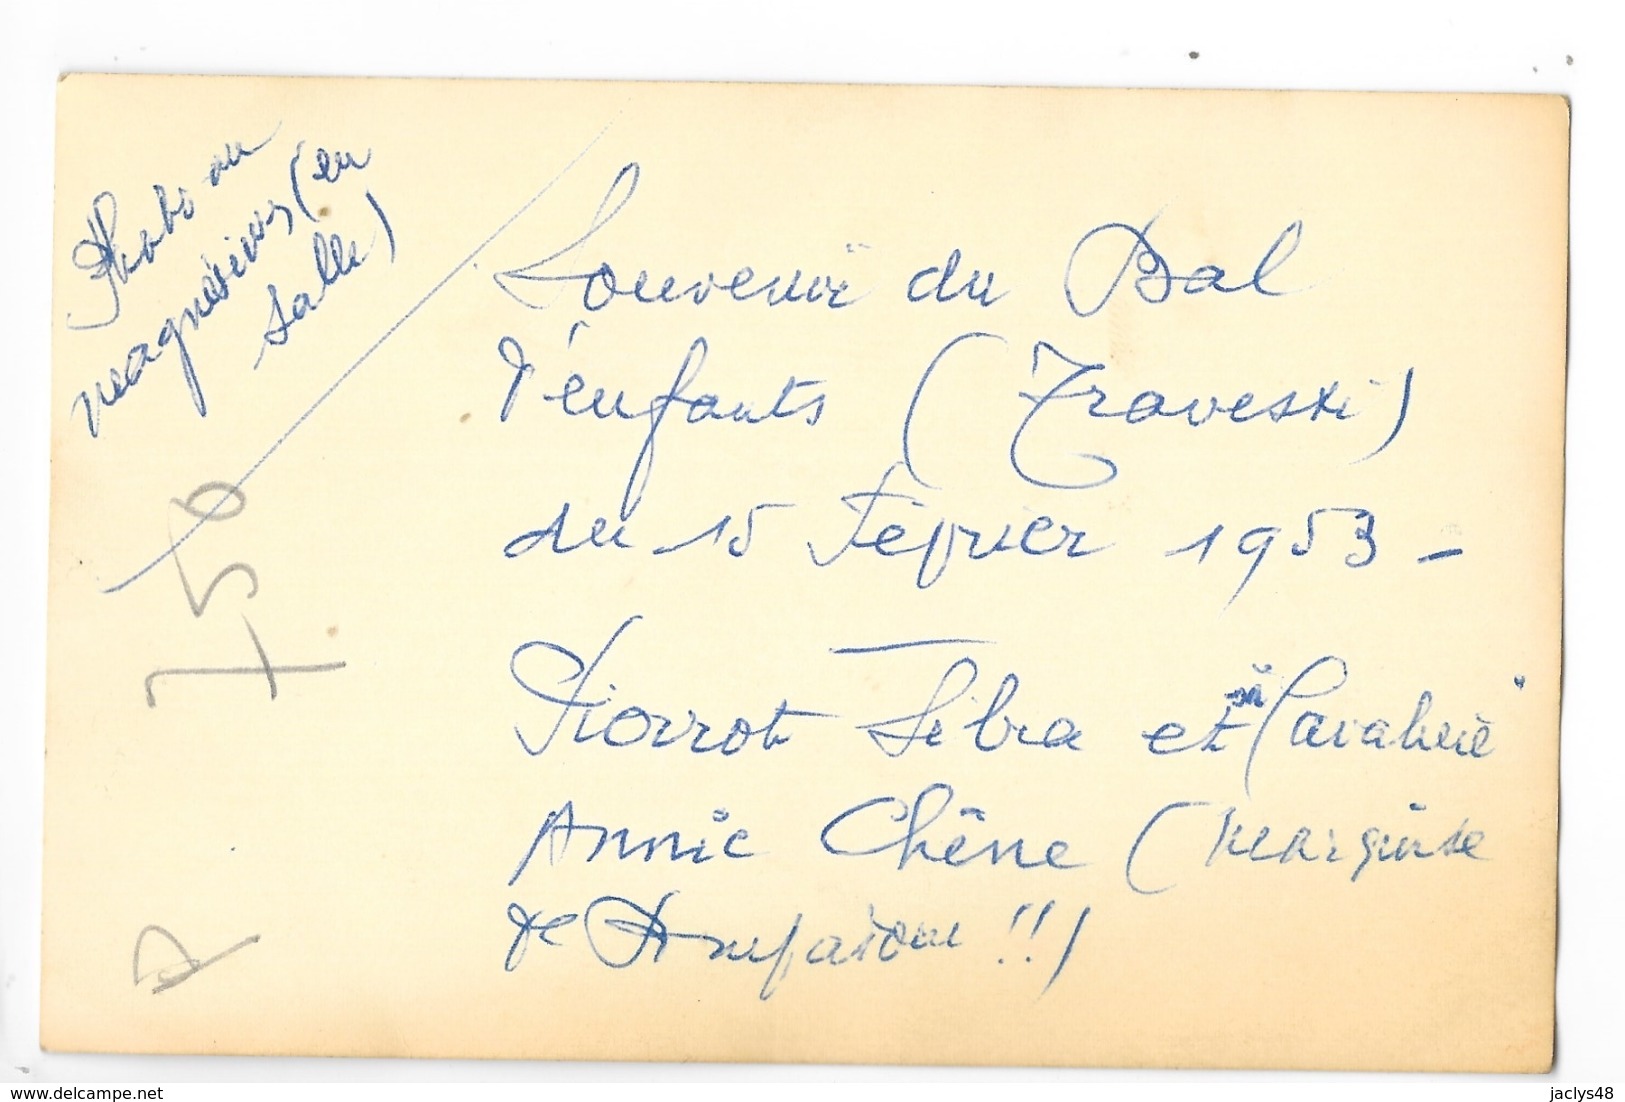 Photo au
magnésium (en
salle)
Souvenir du Bal
d'enfants (Travesti)
du 15 Février 1953 -
Pierrot Sibra et sa Cavalière
Annie Chêne (Marquise
de !!)
750
www.delcampe.net
jaclys48